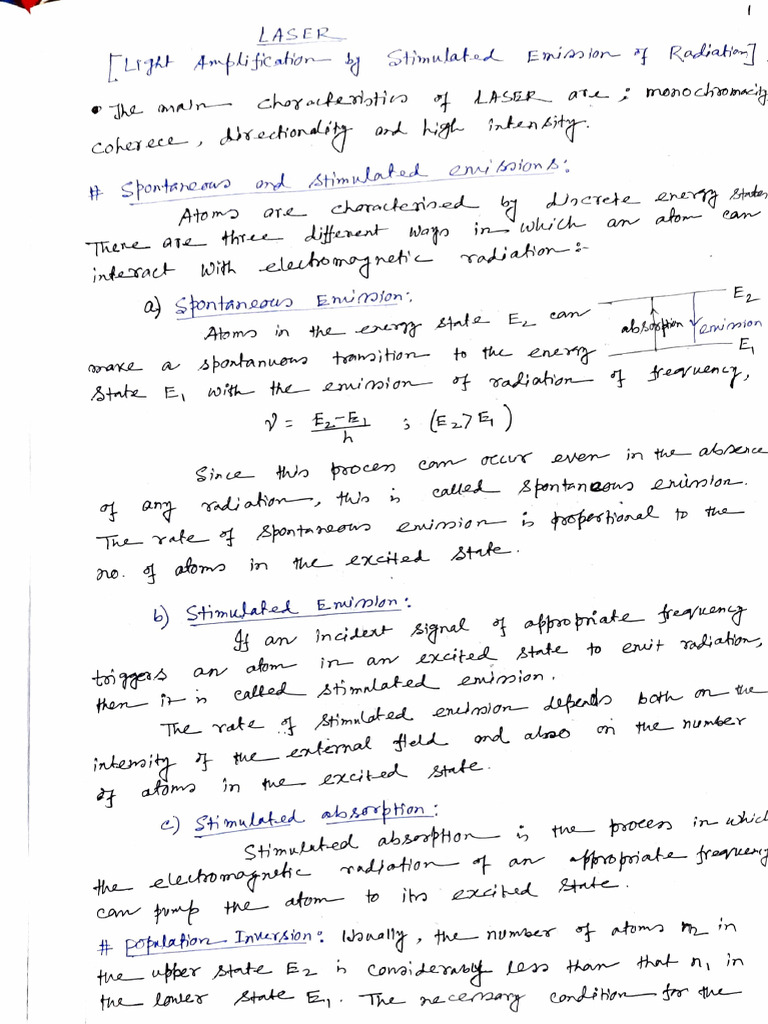 1
LASER
[Light Amplification by Stimulated Emission of Radiation].
• The main characteristics of LASER are; monochromacity,
coherece, directionality and high intensity.
# Spontaneous and stimulated emissions:
Atoms are characterised by discrete energy states.
There are three different ways in which an atom can
interact with electromagnetic radiation:-
a) Spontaneous Emission:
Atoms in the energy state E₂ can
make a spontanuous transition to the energy
state E₁ with the emission of radiation of frequency,
E₂
absorption emission
E₁
ν = E₂-E₁/h ; (E₂>E₁)
Since this process can occur even in the absence
of any radiation, this is called spontaneous emission.
The rate of spontaneous emission is proportional to the
no. of atoms in the excited state.
b) Stimulated Emission:
If an incident signal of appropriate frequency
triggers an atom in an excited state to emit radiation,
then it is called stimulated emission.
The rate of stimulated emission depends both on the
intensity of the external field and also on the number
of atoms in the excited state.
c) Stimulated absorption:
Stimulated absorption is the process in which
the electromagnetic radiation of an appropriate frequency
can pump the atom to its excited state.
# Population Inversion: Usually, the number of atoms n₂ in
the upper state E₂ is considerably less than that n₁ in
the lower state E₁. The necessary condition for the